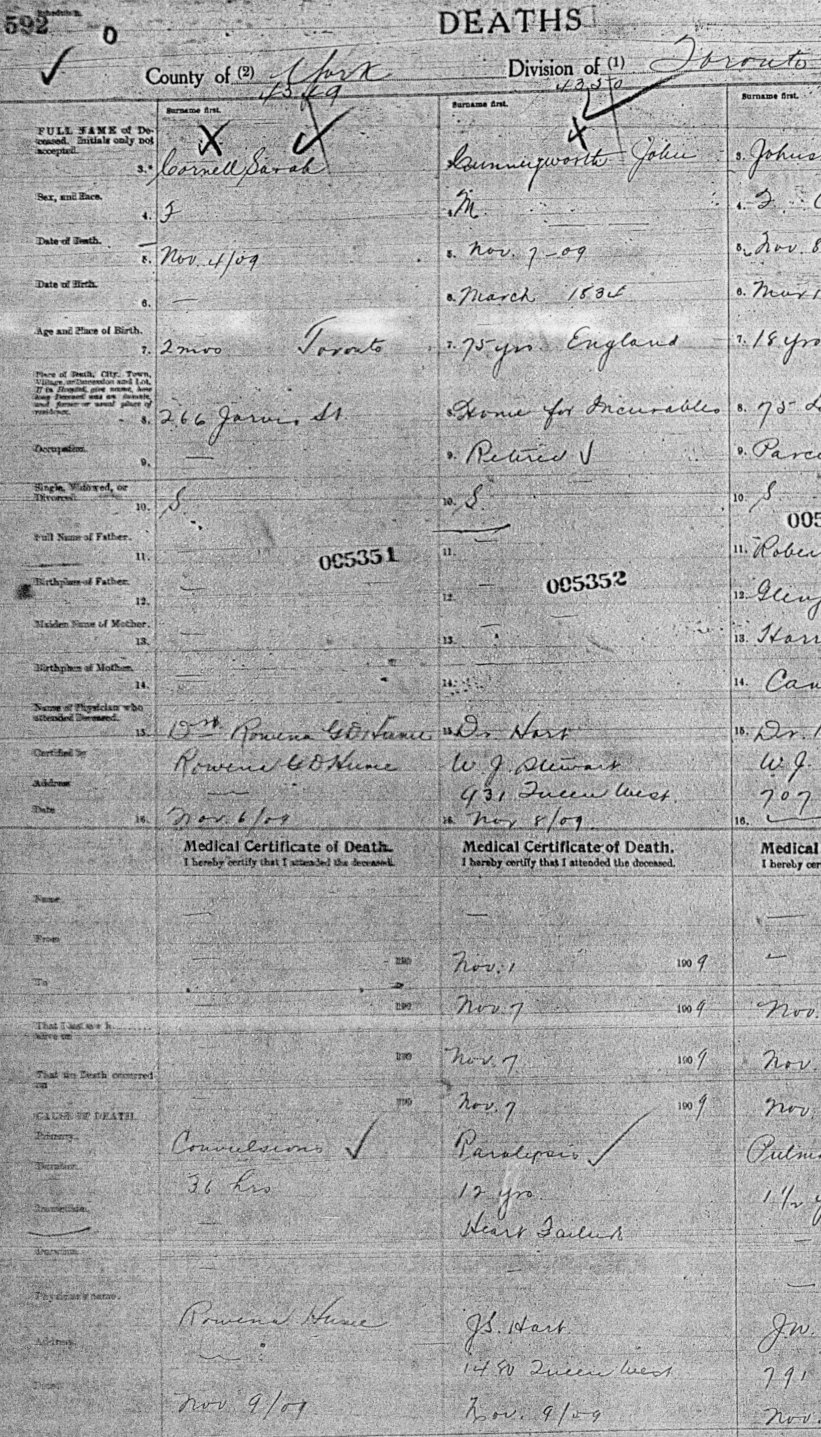 592
DEATHS
County of (2) York
Division of (1) Toronto
4349
4350
FULL NAME of Deceased. Initials only not accepted.
Surname first.
3. Cornell Sarah
Surname first.
John
Surname first.
3. Johns
Sex, and Race.
4. F
4. M
4. F
Date of Death.
5. Nov. 4/09
5. Nov. 7-09
5. Nov. 8
Date of Birth.
6. —
6. March 1834
6.
Age and Place of Birth.
7. 2 mos Toronto
7. 75 yrs England
7. 18 yrs
Place of Death, City, Town,
8. 266 Jarvis St
8. Home for Incurables
8. 75
Occupation.
9. —
9. Retired
9. Parce
Single, Widowed, or Divorced.
10. S.
10. S
10. S
Full Name of Father.
11.
005351
11. —
005
11. Rober
Birthplace of Father.
12. —
12.
005352
12. Leng
Maiden Name of Mother.
13. —
13. —
13. Harr
Birthplace of Mother.
14. —
14. —
14. Can
Name of Physician who attended Deceased.
15. Dr. Rowena G D Hume
15. Dr. Hart
15. Dr.
Certified by
Rowena G D Hume
W. J. Stewart
W. J.
Address
—
931 Queen West
707
Date
16. Nov. 6/09
16. Nov 8/09
16. —
Medical Certificate of Death.
I hereby certify that I attended the deceased.
Medical Certificate of Death.
I hereby certify that I attended the deceased.
Medical
I hereby cer
Name
—
—
—
From
— 190
Nov. 1 1909
—
To
190
Nov. 7 1909
Nov.
That I last saw h
alive on
190
Nov. 7 1909
Nov.
That the Death occurred on
190
Nov. 7 1909
Nov.
CAUSE OF DEATH.
Primary.
Convulsions
Paralysis
Pulmo
Duration.
36 hrs
12 yrs
1 1/2 y
Immediate.
—
Heart Failure
—
Duration.
—
—
Physician's name.
Rowena Hume
J S. Hart
J W.
Address.
—
1480 Queen West
791
Date.
Nov 9/09
Nov. 9/09
Nov.